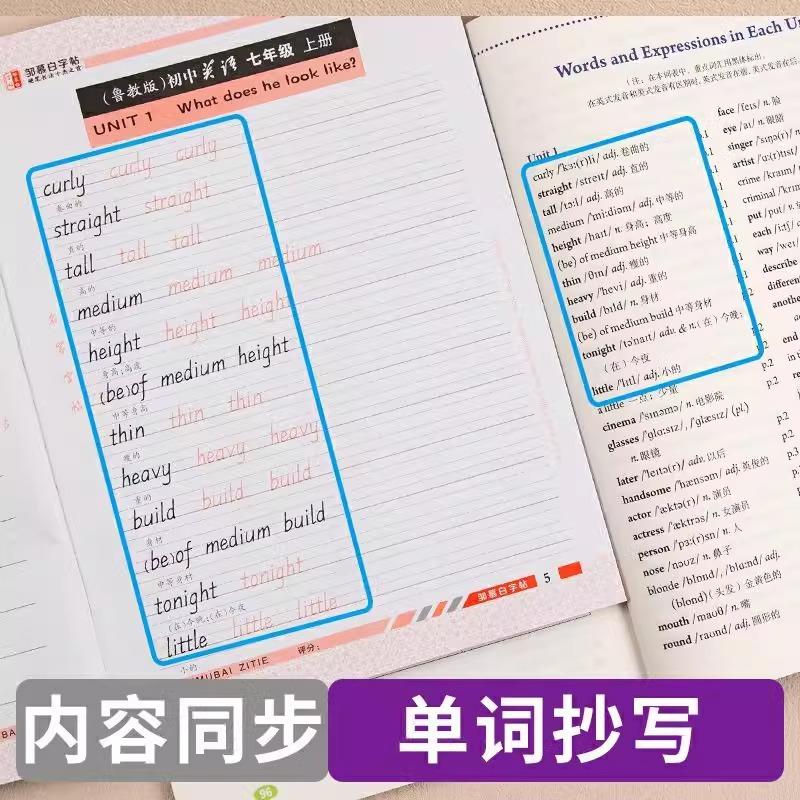 邹慕白字帖
(鲁教版)初中英语 七年级 上册
UNIT 1 What does he look like?
curly curly curly
卷曲的
straight straight
直的
tall tall tall
高的
medium medium medium
中等的
height height height
身高;高度
(be)of medium height
中等身高
thin thin thin
瘦的
heavy heavy heavy
重的
build build build
身材
(be)of medium build
中等身材
tonight tonight
(在)今晚;(在)今夜
little little little
小的
MUBAI ZITIE 评分:
邹慕白字帖 5
96
Words and Expressions in Each Un
(注:在本词表中,重点词汇用黑体标出,
在英式发音和美式发音有区别时,英式发音在前,美式发音在后。
Unit 1
curly /ˈkɜː(r)li/ adj. 卷曲的 p.1
straight /streɪt/ adj. 直的 p.1
tall /tɔːl/ adj. 高的 p.1
medium /ˈmiːdiəm/ adj. 中等的 p.1
height /haɪt/ n. 身高;高度 p.1
(be) of medium height 中等身高 p.1
thin /θɪn/ adj. 瘦的 p.1
heavy /ˈhevi/ adj. 重的 p.1
build /bɪld/ n. 身材 p.1
(be) of medium build 中等身材
tonight /təˈnaɪt/ adv. & n.(在)今晚;
(在)今夜 p.2
little /ˈlɪtl/ adj. 小的 p.2
a little 一点;少量 p.2
cinema /ˈsɪnəmə/ n. 电影院 p.2
glasses /ˈɡlɑːsɪz/, /ˈɡlæsɪz/ (pl.)
n. 眼镜 p.2
later /ˈleɪtə(r)/ adv. 以后 p.2
handsome /ˈhænsəm/ adj. 英俊的
actor /ˈæktə(r)/ n. 演员
actress /ˈæktrəs/ n. 女演员
person /ˈpɜː(r)sn/ n. 人
nose /nəʊz/ n. 鼻子
blonde /blɒnd/, /blɑːnd/ adj.
(blond)(头发)金黄色的
mouth /maʊθ/ n. 嘴
round /raʊnd/ adj. 圆形的
face /feɪs/ n. 脸
eye /aɪ/ n. 眼睛
singer /ˈsɪŋə(r)/ n.
artist /ˈɑː(r)tɪst/
crime /kraɪm/
criminal /ˈkrɪm
put /pʊt/
each /iːtʃ/
way /weɪ/
describe
different
another
end
in t
real
内容同步
单词抄写